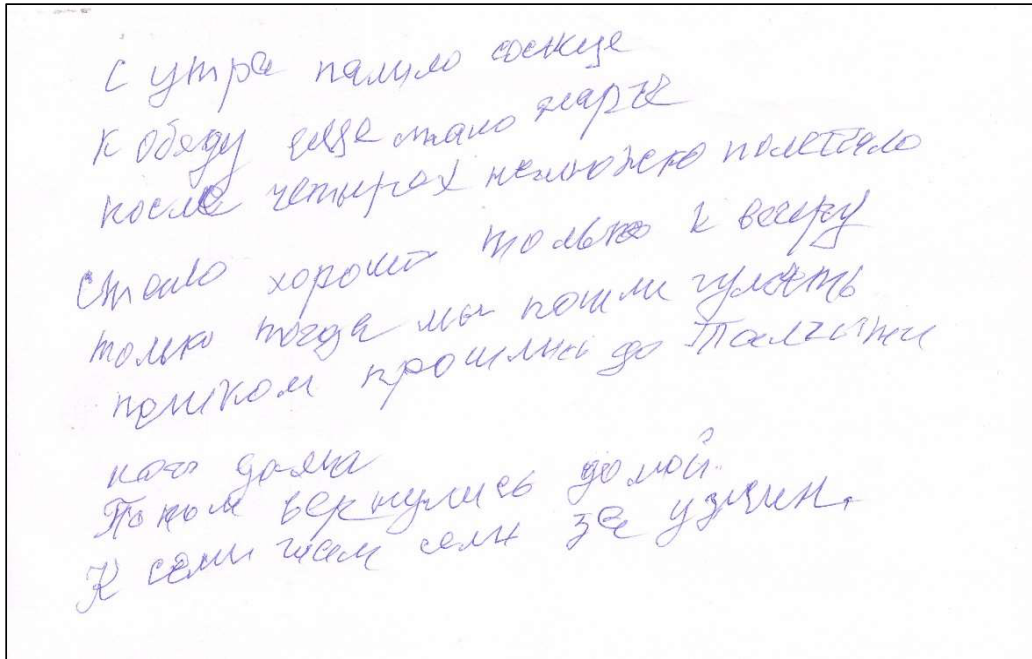 С утра палило соенце
к обяду еще стало жарче
после четырах немножко полегчало
стало хорошо только к вечеру
только тогда мы пошли гулять
пешком прошлись до
Потом вернулись домой.
К семи часам сели за ужин.